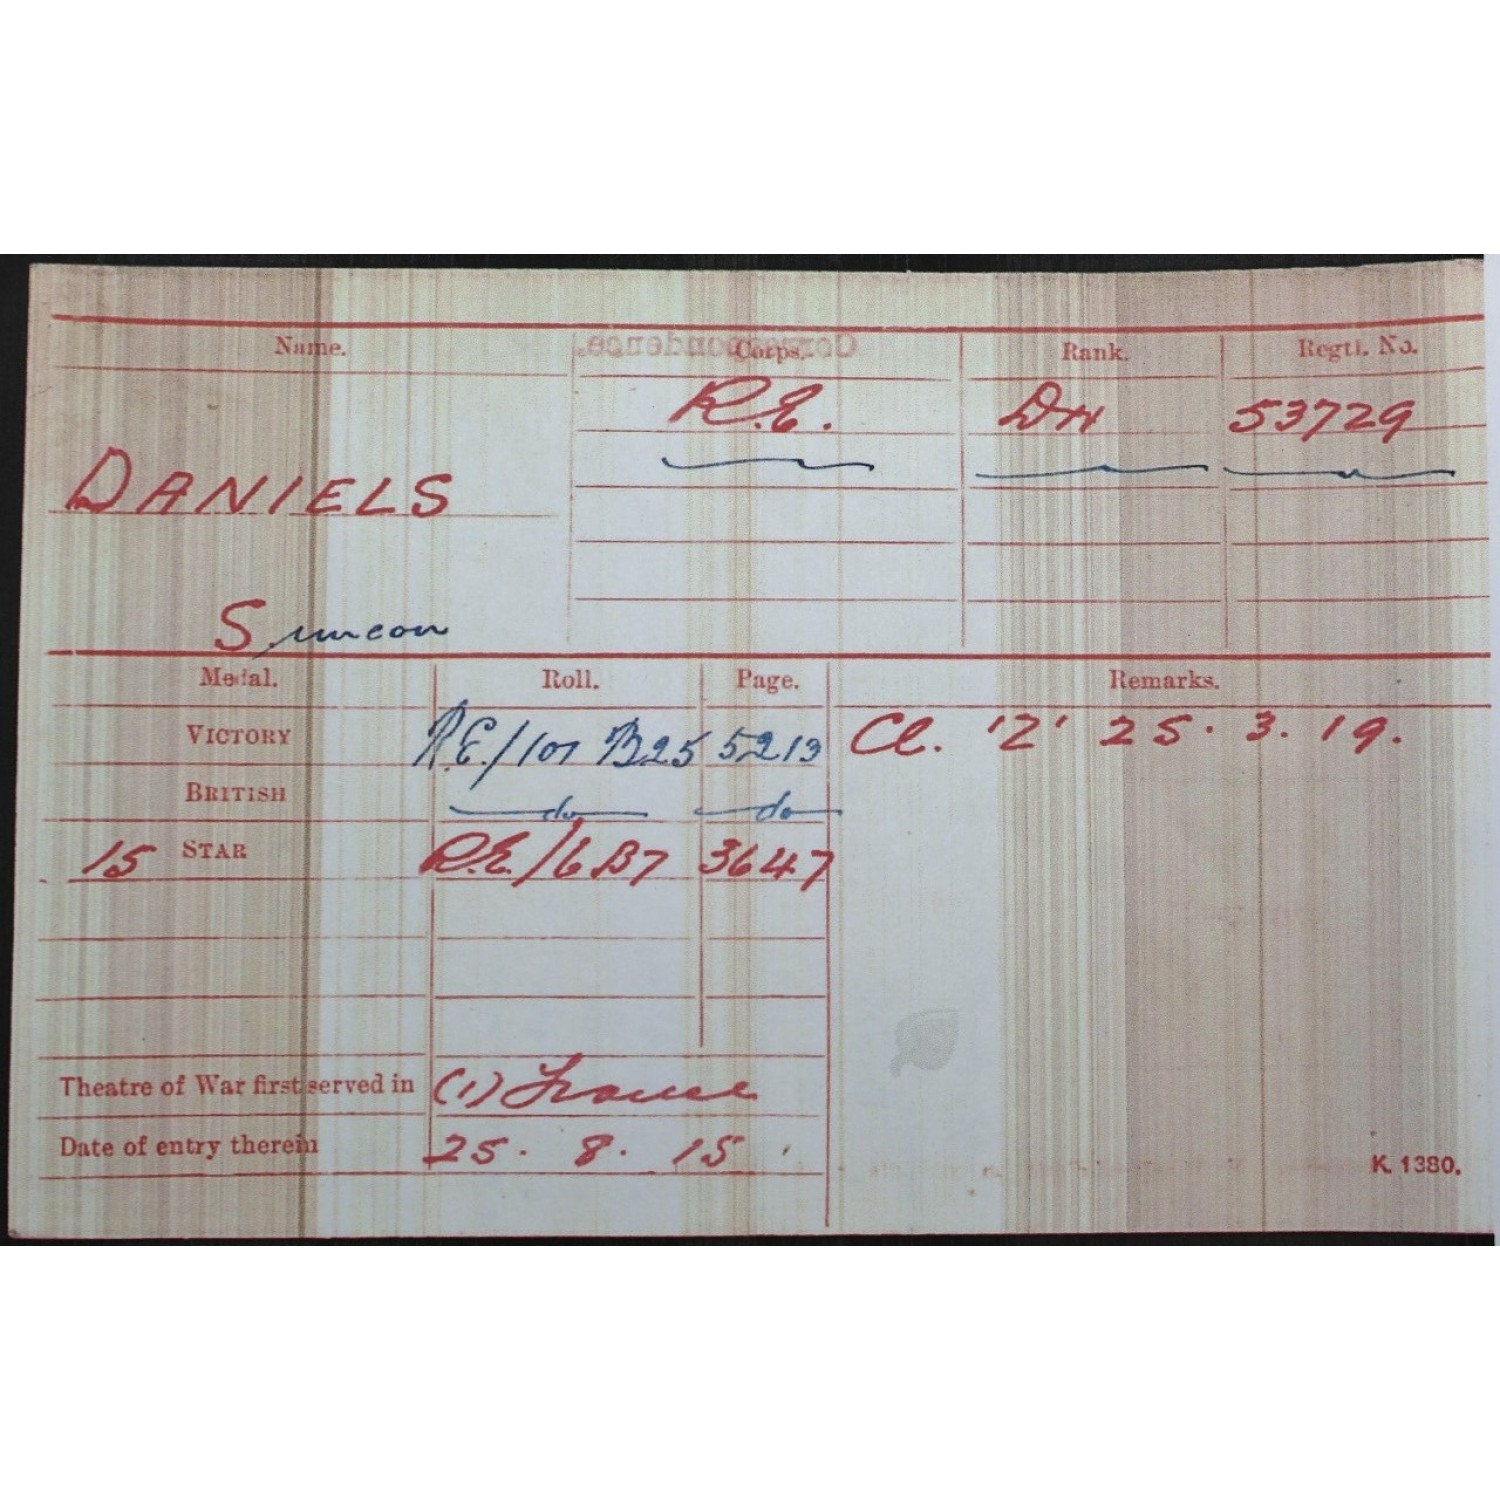 Name. Corps. Rank. Regtl. No.
Correspondence.
R.E. Dr 53729
DANIELS
Simeon
Medal. Roll. Page. Remarks.
VICTORY R.E./101 B25 5213 Cl. 'Z' 25. 3. 19.
BRITISH do do
15 STAR R.E./6B7 3647
Theatre of War first served in (1) France
Date of entry therein 25. 8. 15
K. 1380.